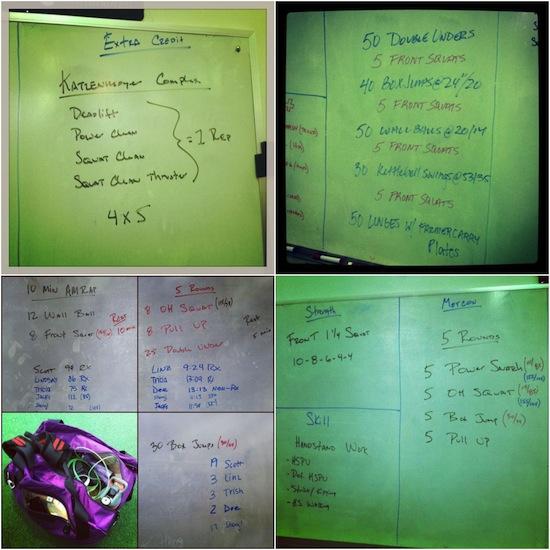 EXTRA CREDIT
Deadlift
Power Clean
Squat Clean
Squat Clean Thruster
= 1 Rep
4 x 5
50 DOUBLE UNDERS
5 FRONT SQUATS
40 BOX JUMPS @ 24"/20
5 FRONT SQUATS
50 WALL BALLS @ 20/14
5 FRONT SQUATS
30 KETTLEBELL SWINGS @ 53/35
5 FRONT SQUATS
50 LUNGES W/ FARMER CARRY
Plates
10 MIN AMRAP
12 Wall Ball
8 Front Squat
Rest
10 min
SCOTT
LINDSAY 86 Rx
TRICIA 75 Rx
5 Rounds
8 OH SQUAT
8 PULL UP
25 Double Under
Rest
5 min
LINZ 9:24 Rx
TRICIA 13:09 Rx
DEE 13:13 NON-Rx
30 Box Jumps
19 Scott
3 Linz
3 Trish
2 Dee
Strength
FRONT 1 1/4 SQUAT
10-8-6-4-4
SKILL
HANDSTAND WORK
- HSPU
- B.S. Walking
METCON
5 ROUNDS
5 POWER SNATCH
5 OH SQUAT
5 BOX JUMP
5 PULL UP